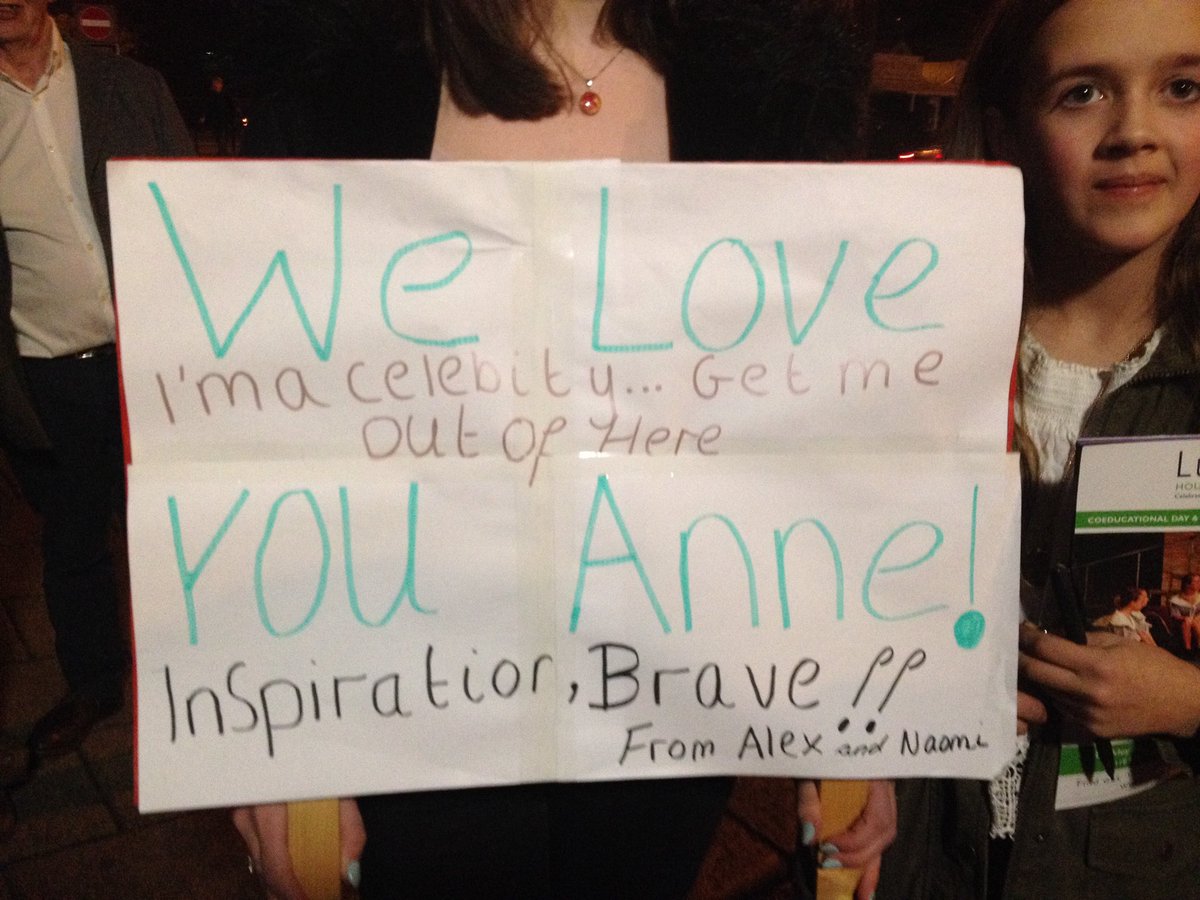 We Love
I'm a celebity... Get me
out of Here
YOU Anne!
Inspiration, Brave!!
From Alex and Naomi
HOU
COEDUCATIONAL DAY &